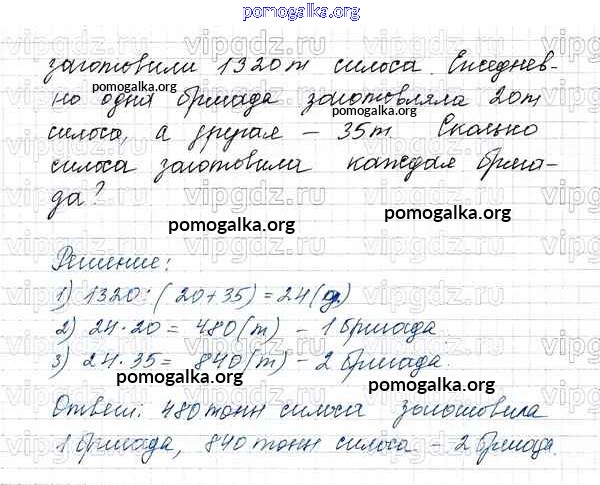 pomogalka.org
заготовили 1320 т силоса. Ежеднев-
но одна бригада заготовляла 20 т
силоса, а другая – 35 т. Сколько
силоса заготовила каждая брига-
да?
pomogalka.org
pomogalka.org
pomogalka.org
pomogalka.org
Решение:
1) 1320 : (20+35) = 24 (д.)
2) 24 · 20 = 480 (т) – 1 бригада.
3) 24 · 35 = 840 (т) – 2 бригада.
pomogalka.org
pomogalka.org
Ответ: 480 тонн силоса заготовила
1 бригада, 840 тонн силоса – 2 бригада.
vipgdz.ru